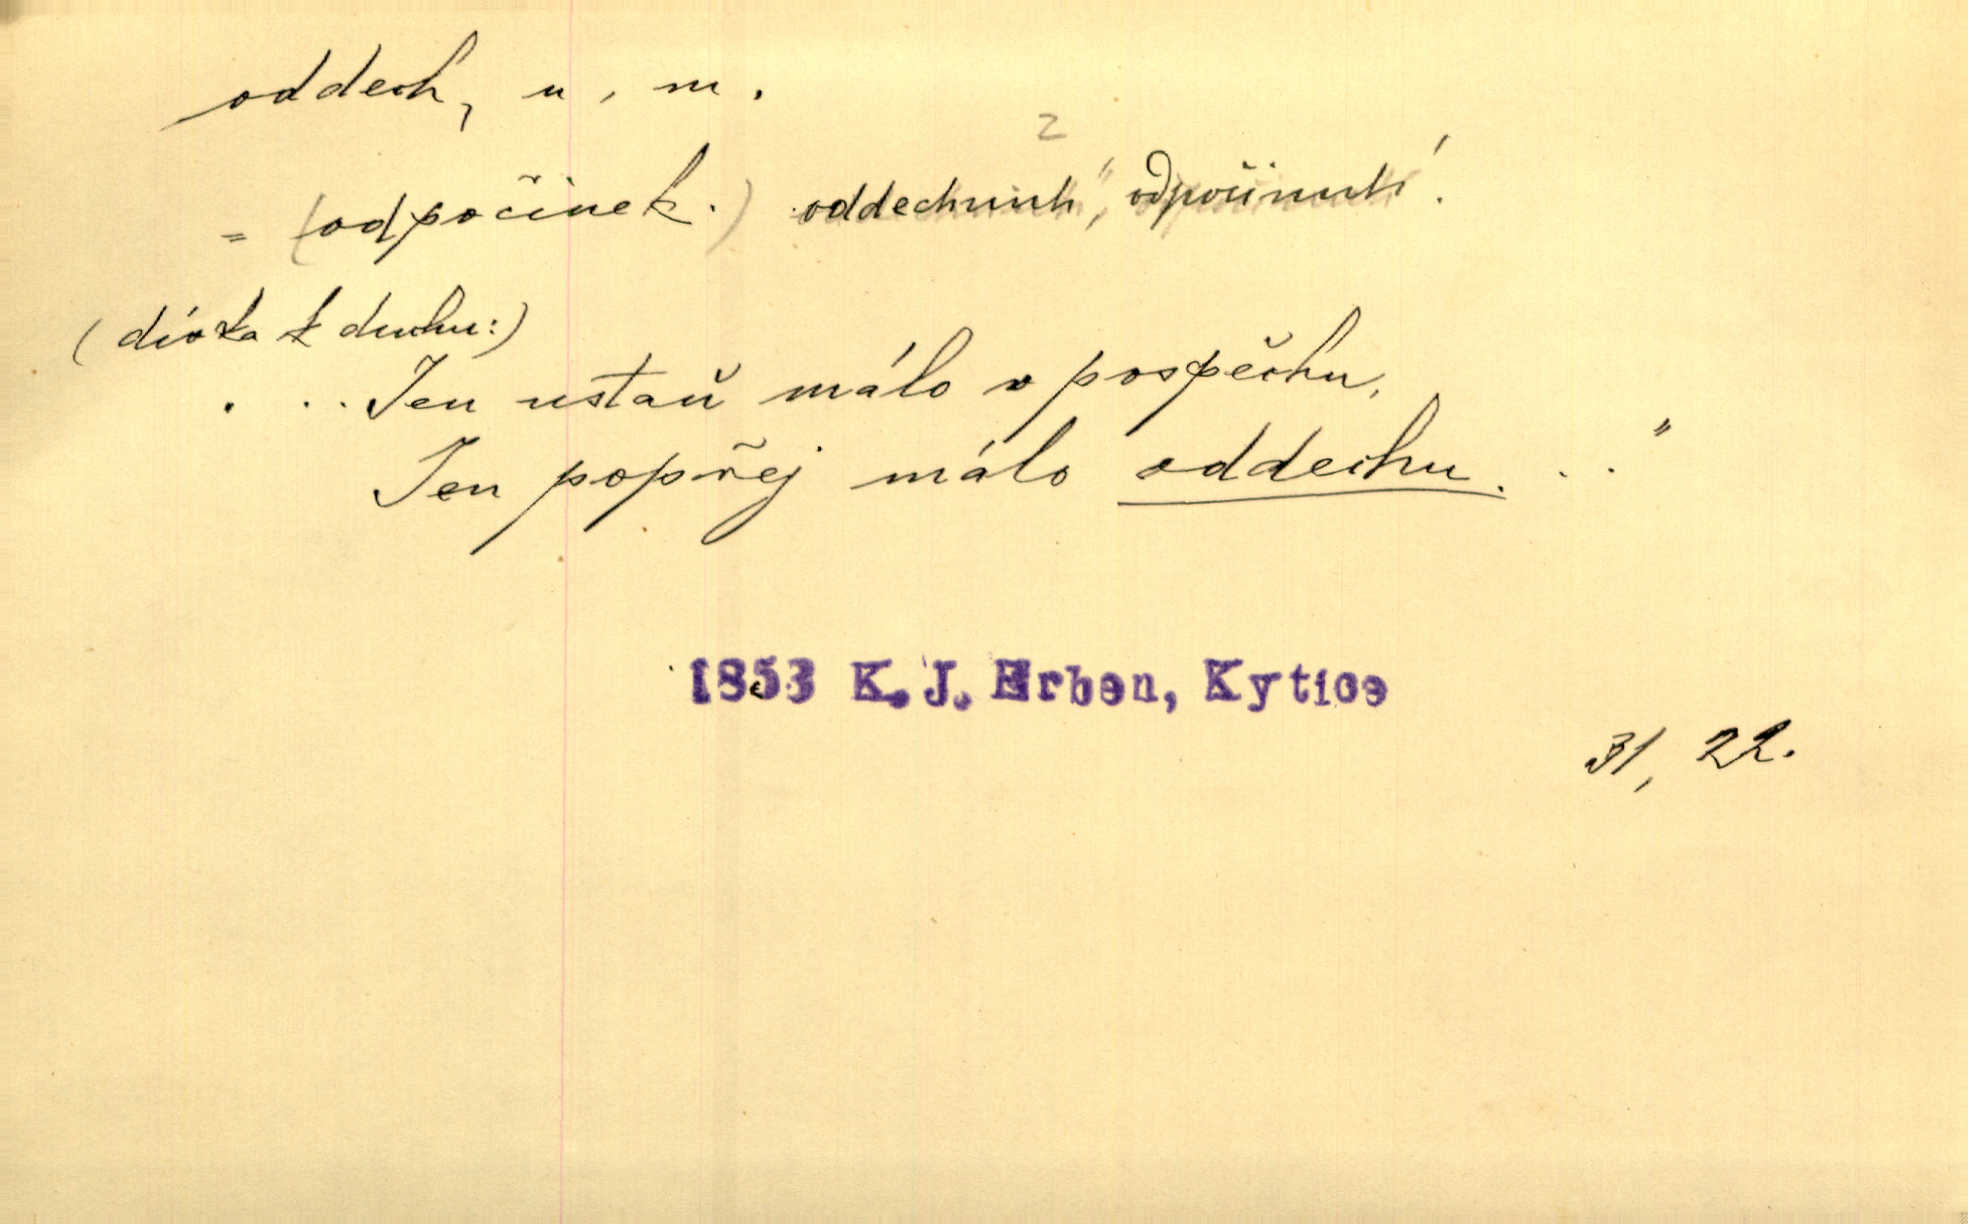 oddech, u, m.
2
= (odpočinek.) oddechnutí, odpočinutí.
(dívka k duchu:)
. . . Jen ustaň málo v pospěchu,
Jen popřej málo oddechu. . . "
1853 K. J. Erben, Kytice
31, 22.